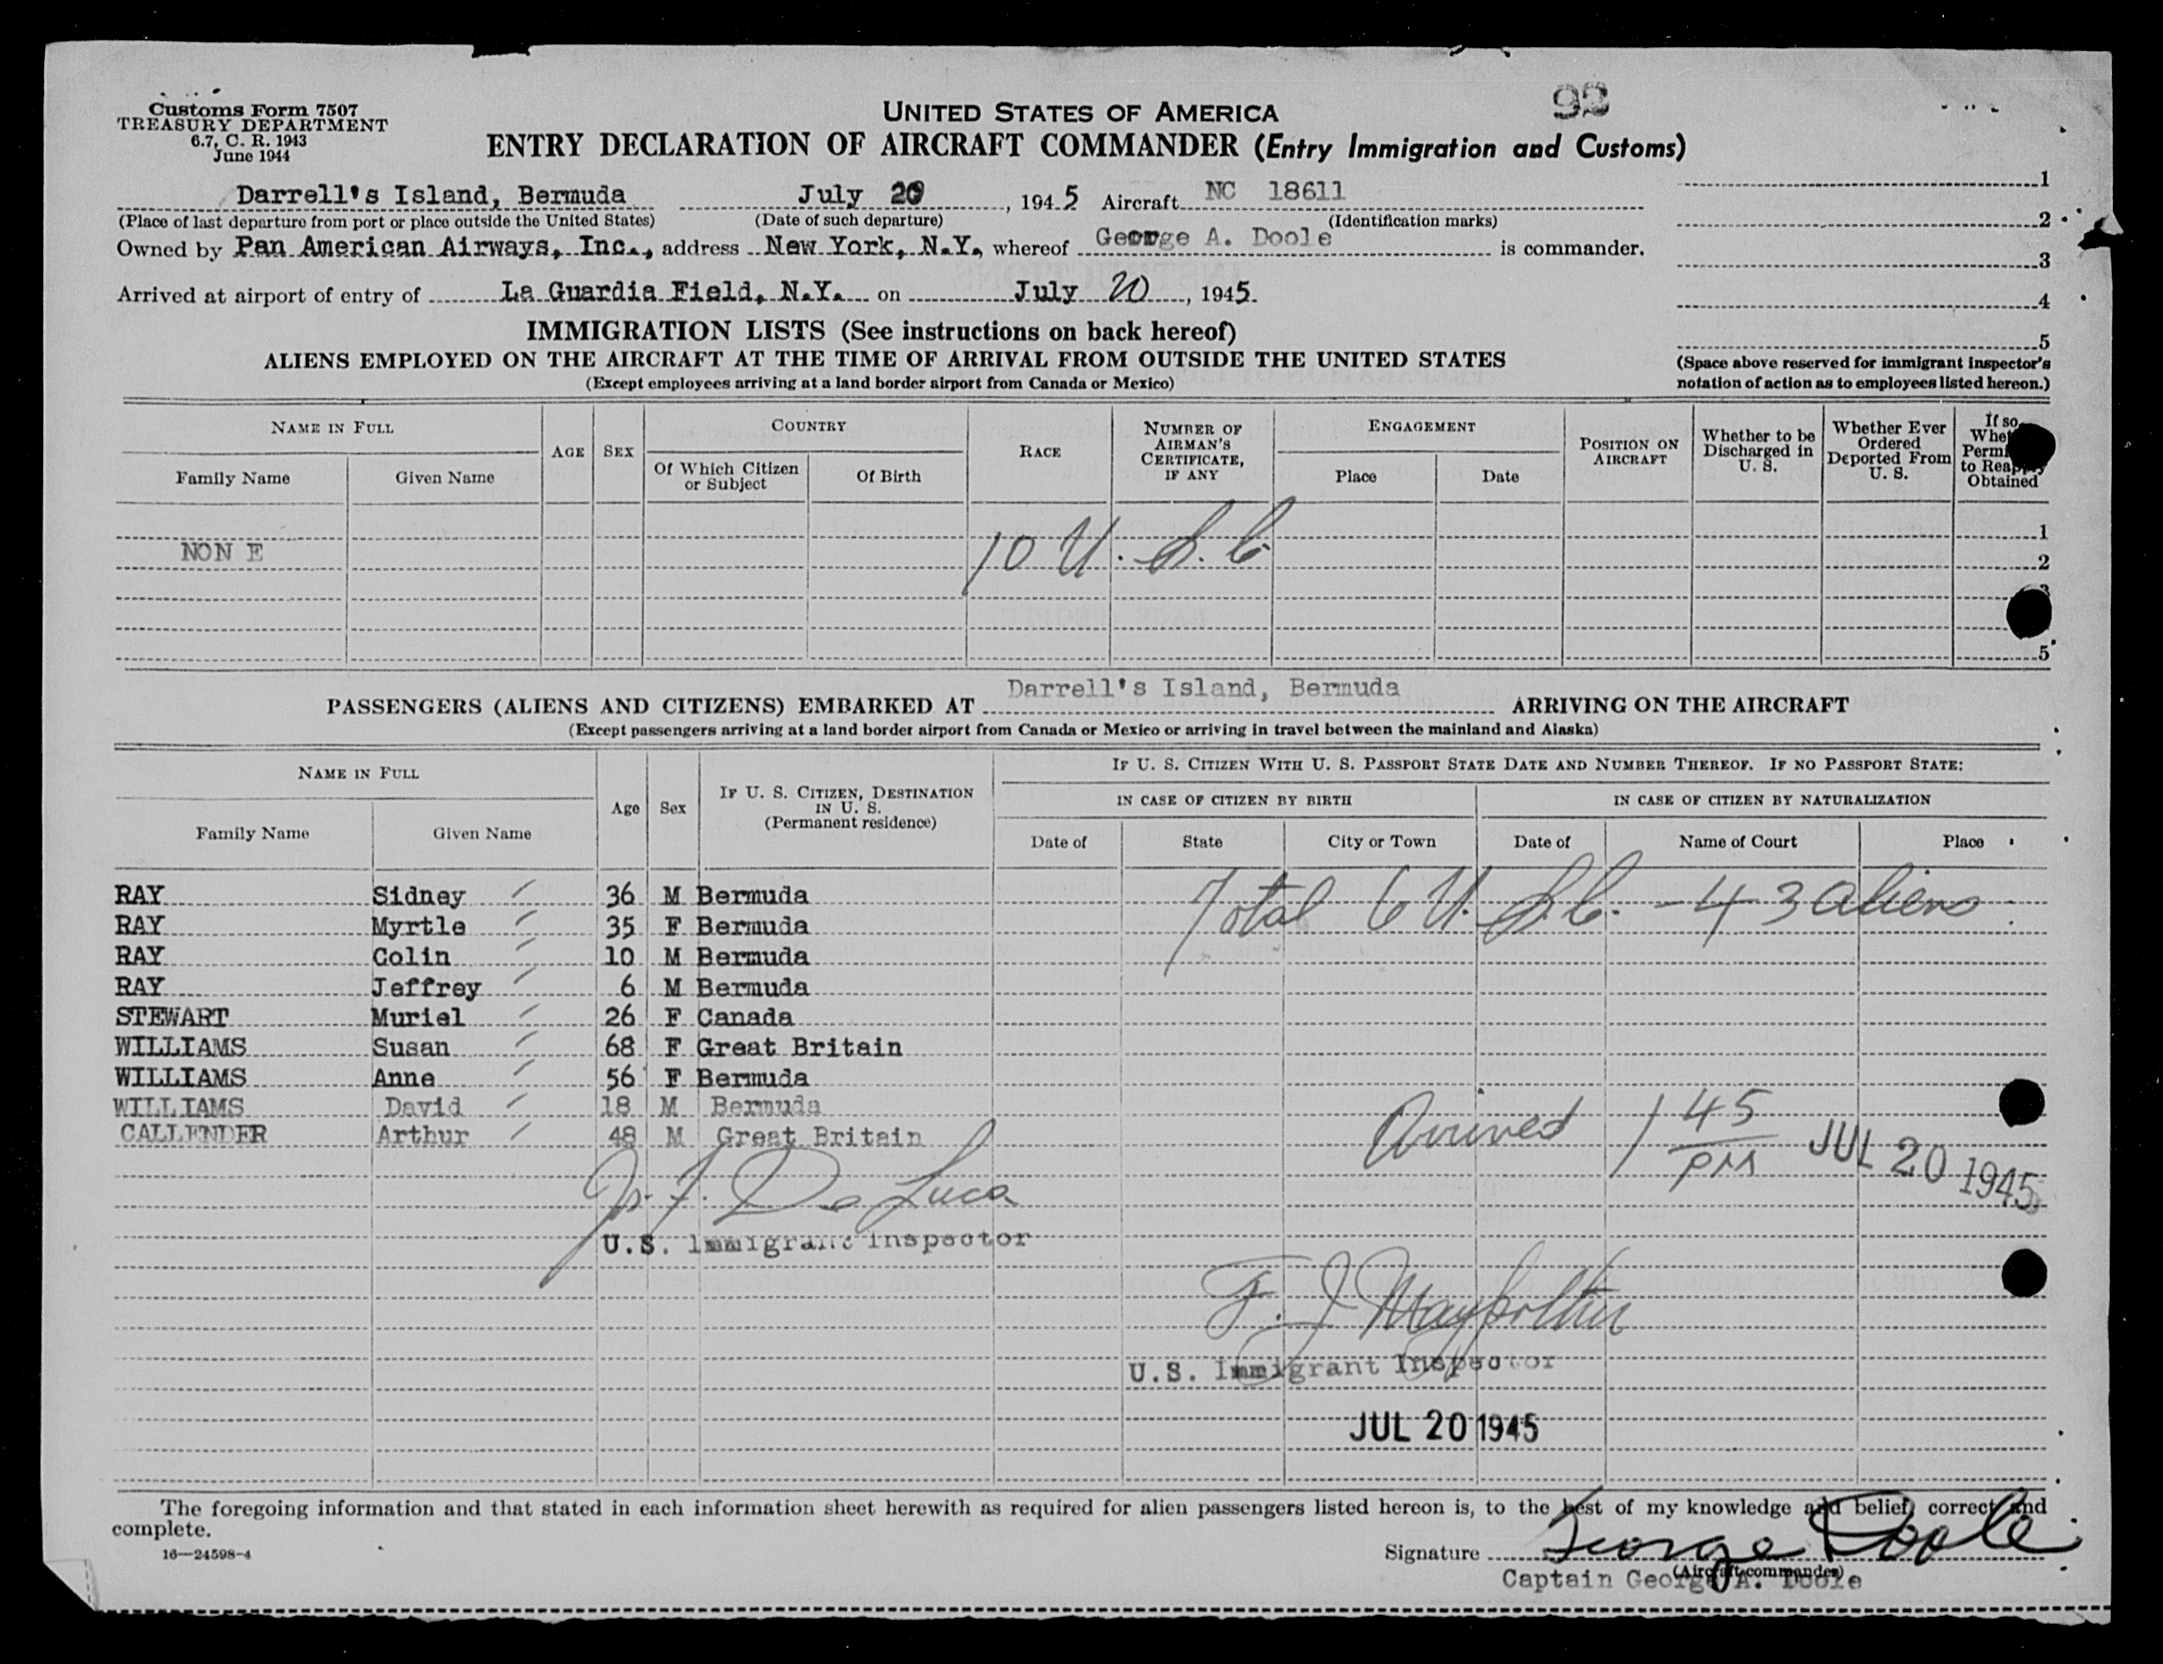 92
Customs Form 7507
TREASURY DEPARTMENT
6.7, C. R. 1943
June 1944
UNITED STATES OF AMERICA
ENTRY DECLARATION OF AIRCRAFT COMMANDER (Entry Immigration and Customs)
Darrell's Island, Bermuda July 20, 1945 Aircraft NC 18611
(Place of last departure from port or place outside the United States) (Date of such departure) (Identification marks)
Owned by Pan American Airways, Inc., address New York, N.Y. whereof George A. Doole is commander.
Arrived at airport of entry of La Guardia Field, N.Y. on July 20, 1945.
1
2
3
4
5
(Space above reserved for immigrant inspector's
notation of action as to employees listed hereon.)
IMMIGRATION LISTS (See instructions on back hereof)
ALIENS EMPLOYED ON THE AIRCRAFT AT THE TIME OF ARRIVAL FROM OUTSIDE THE UNITED STATES
(Except employees arriving at a land border airport from Canada or Mexico)
NAME IN FULL
Family Name Given Name
AGE SEX
COUNTRY
Of Which Citizen or Subject Of Birth
RACE
NUMBER OF AIRMAN'S CERTIFICATE, IF ANY
ENGAGEMENT
Place Date
POSITION ON AIRCRAFT
Whether to be Discharged in U. S.
Whether Ever Ordered Deported From U. S.
If so to Obtained
1
NON E 10 U. S. C. 2
5
PASSENGERS (ALIENS AND CITIZENS) EMBARKED AT Darrell's Island, Bermuda ARRIVING ON THE AIRCRAFT
(Except passengers arriving at a land border airport from Canada or Mexico or arriving in travel between the mainland and Alaska)
NAME IN FULL
Family Name Given Name
Age Sex
IF U. S. CITIZEN, DESTINATION IN U. S. (Permanent residence)
IF U. S. CITIZEN WITH U. S. PASSPORT STATE DATE AND NUMBER THEREOF. IF NO PASSPORT STATE:
IN CASE OF CITIZEN BY BIRTH IN CASE OF CITIZEN BY NATURALIZATION
Date of State City or Town Date of Name of Court Place
RAY Sidney 36 M Bermuda Total 6 U. S. C. - 43 aliens
RAY Myrtle 35 F Bermuda
RAY Colin 10 M Bermuda
RAY Jeffrey 6 M Bermuda
STEWART Muriel 26 F Canada
WILLIAMS Susan 68 F Great Britain
WILLIAMS Anne 56 F Bermuda
WILLIAMS David 18 M Bermuda
CALLENDER Arthur 48 M Great Britain
Arrived 1 45 PM JUL 20 1945
De Luca
U.S. Immigrant Inspector
F. J.
U.S. Immigrant Inspector
JUL 20 1945
The foregoing information and that stated in each information sheet herewith as required for alien passengers listed hereon is, to the best of my knowledge and belief, correct and
complete.
16—24598-4
Signature George Doole
(Aircraft commander)
Captain George A. Doole